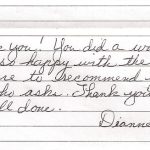 you! You did a wo
so happy with the
re to recommend
ho asks. Thank you
ll done.
Dianne